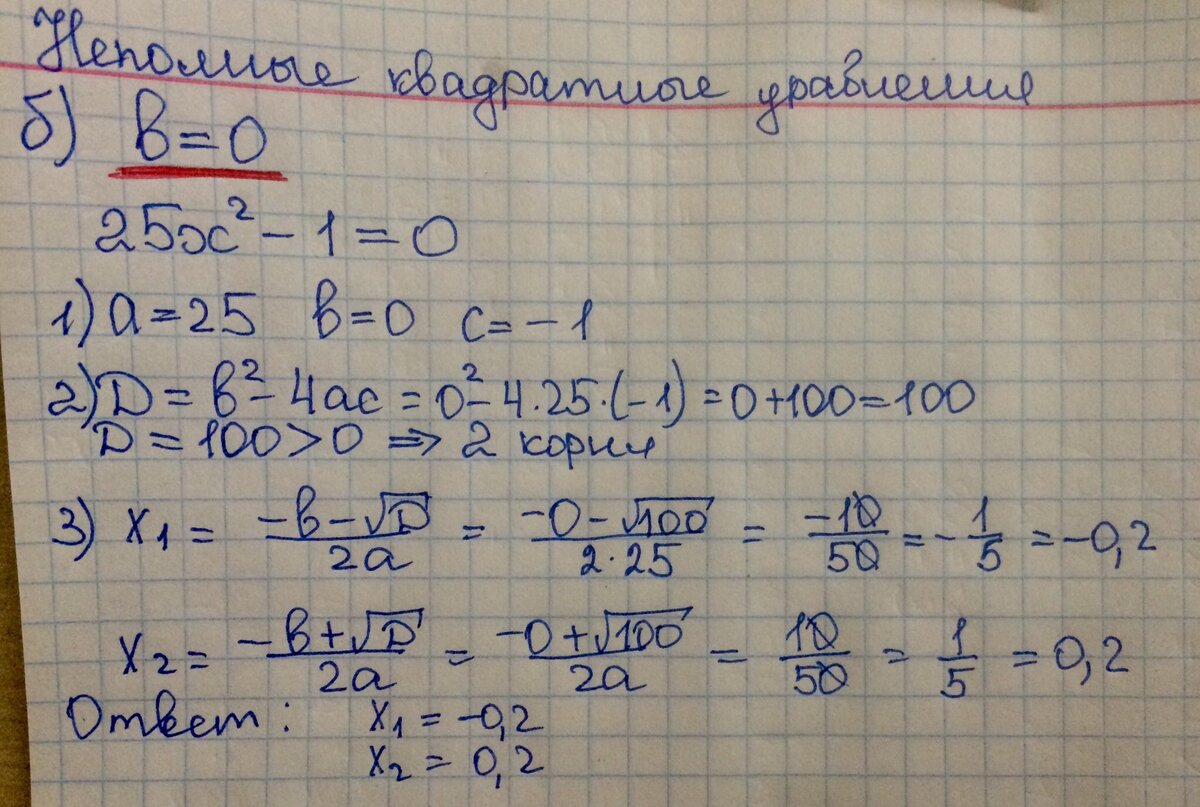 Неполные квадратные уравнения
б) в=0
25x² - 1 = 0
1) a = 25 в = 0 c = -1
2) D = в² - 4ac = 0² - 4·25·(-1) = 0+100 = 100
D = 100 > 0 ⇒ 2 корня
3) x₁ = (-в-√D)/(2a) = (-0-√100)/(2·25) = -10/50 = -1/5 = -0,2
x₂ = (-в+√D)/(2a) = (-0+√100)/(2a) = 10/50 = 1/5 = 0,2
Ответ: x₁ = -0,2
x₂ = 0,2